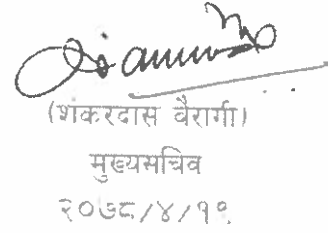 (शंकरदास बैरागी)
मुख्यसचिव
२०७८/४/१९